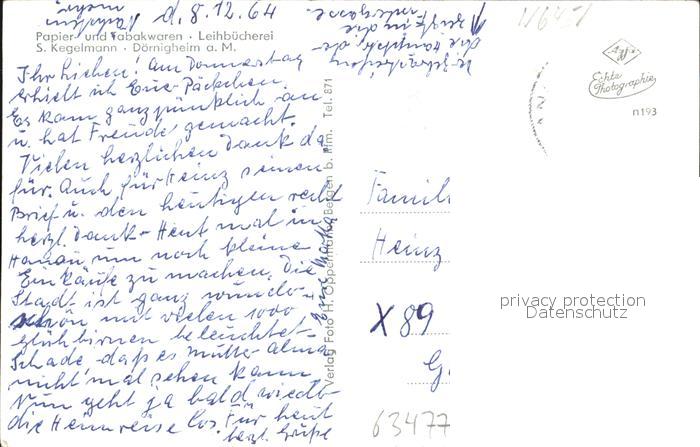 d. 8.12.64
Papier- und Tabakwaren · Leihbücherei
S. Kegelmann · Dörnigheim a. M.
Ihr Lieben! Am Donnerstag
erhielt ich Eure Päckchen.
Es kam ganz pünktlich an
u. hat Freude gemacht.
Vielen herzlichen Dank da
für. Auch für Heinz seinen
Brief u. den heutigen recht
herzl. Dank - Heut mal in
Hanau um noch kleine
Einkäufe zu machen. Die
Stadt ist ganz wunder-
schön mit vielen 1000
Glühbirnen beleuchtet.
Schade daß es Mutter Alma
nicht mal sehen kann
Nun geht ja bald wieder
die Heimreise los. Für heut
herzl. Grüße
Verlag Foto H. Oppermann, Bergen b. Ffm. Tel. 871
Agfa
Echte
Photographie
n193
Famili
Heinz
X 89
G
63477
privacy protection
Datenschutz